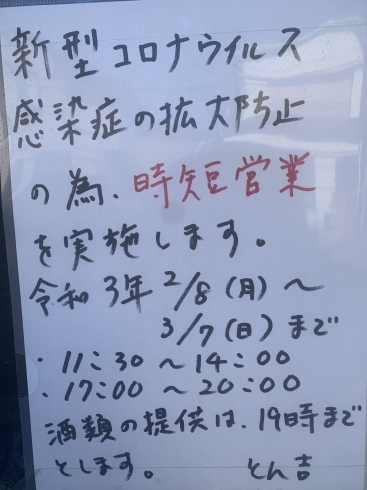 新型コロナウイルス
感染症の拡大防止
の為、時短営業
を実施します。
令和3年2/8(月)〜
3/7(日)まで
・11:30〜14:00
・17:00〜20:00
酒類の提供は、19時まで
とします。 とん吉